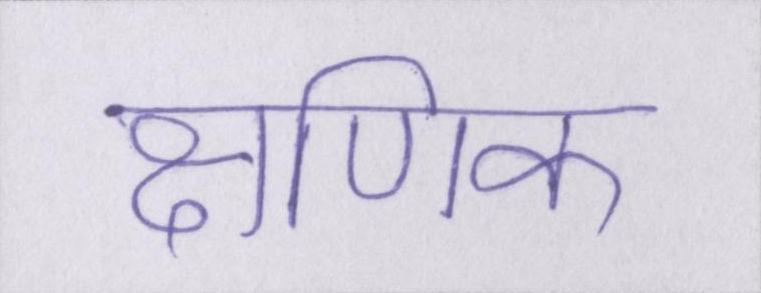 क्षणिक